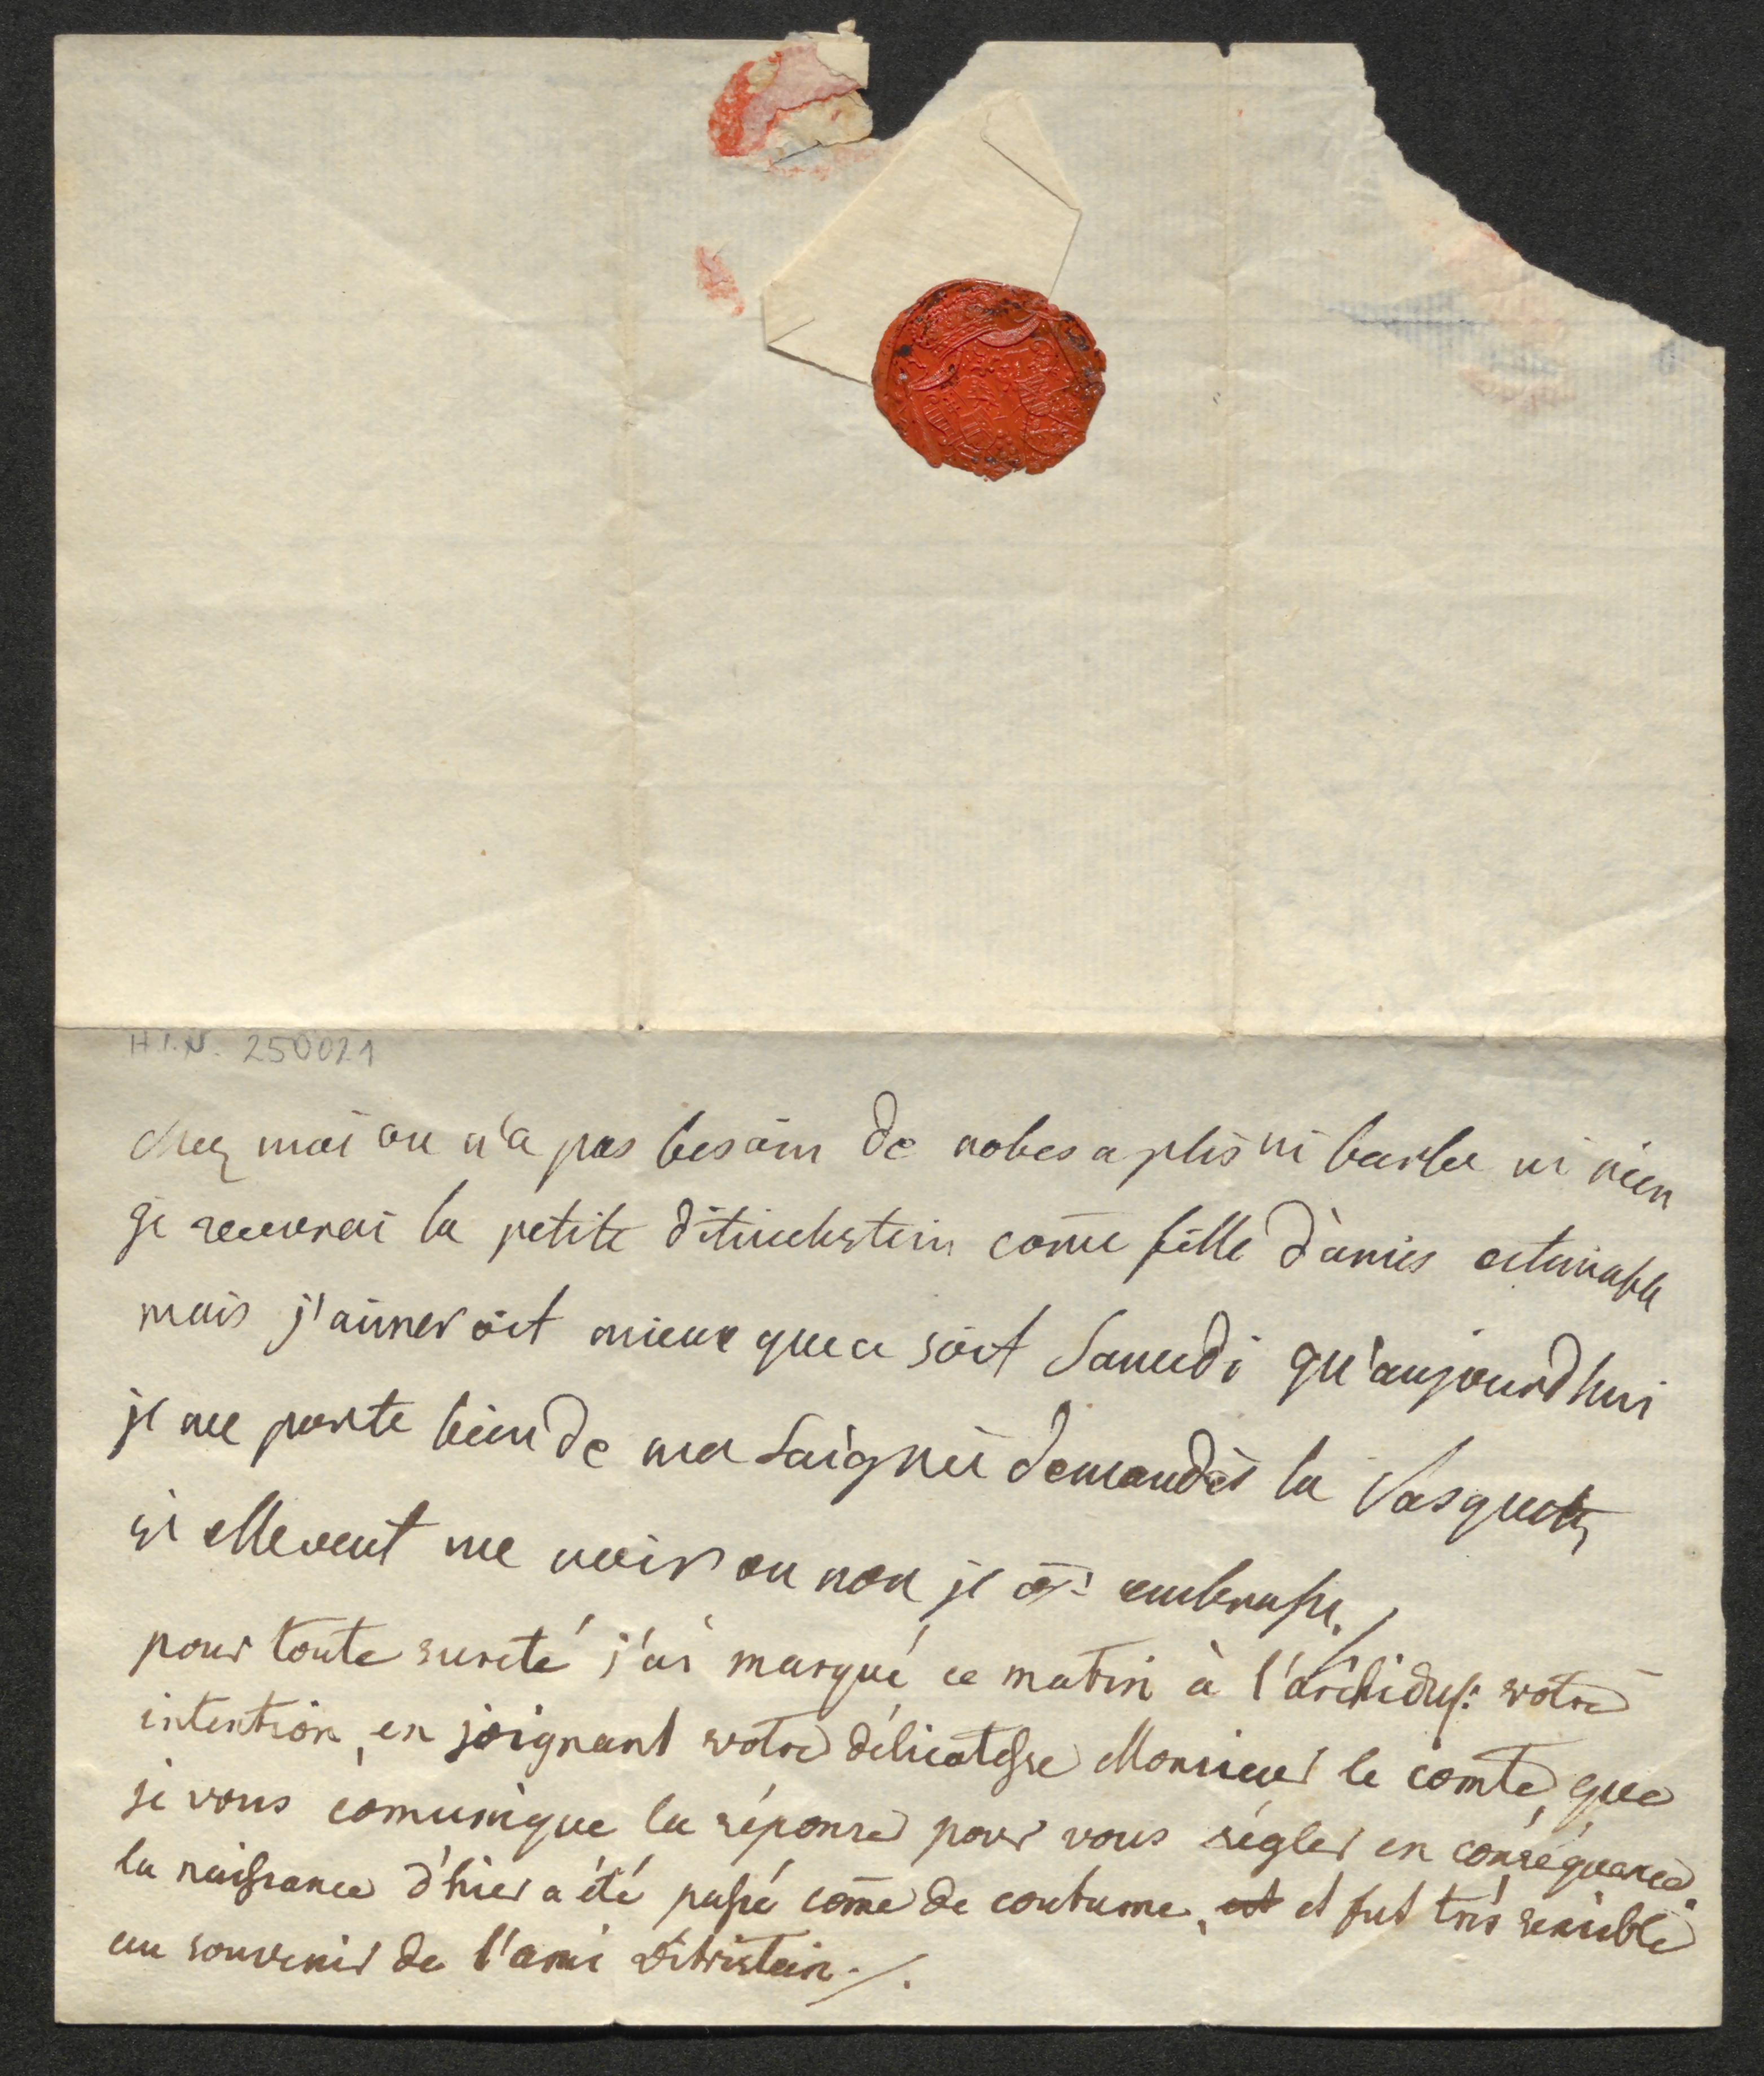 H.I.N. 250021
chez moi on n'a pas besoin de robes a plis ni barbe ni rien
je recevrai la petite ditrichstein come fille d'amis estimable
mais j'aimeroit mieux que ce soit Samedi qu'aujourdhui
je me porte bien de ma Saignée demandés la Vasquetz
si elle veut me voir ou non je embrasse
pour toute sureté j'ai marqué ce matin à l'archiduss: votre
intention, en joignant votre délicatesse Monsieur le comte, que
je vous comunique la réponse pour vous régler en conséquence.
la naissance d'hier a été passé come de coutume, et fut très sensible
au souvenir de l'ami Ditristein ./.